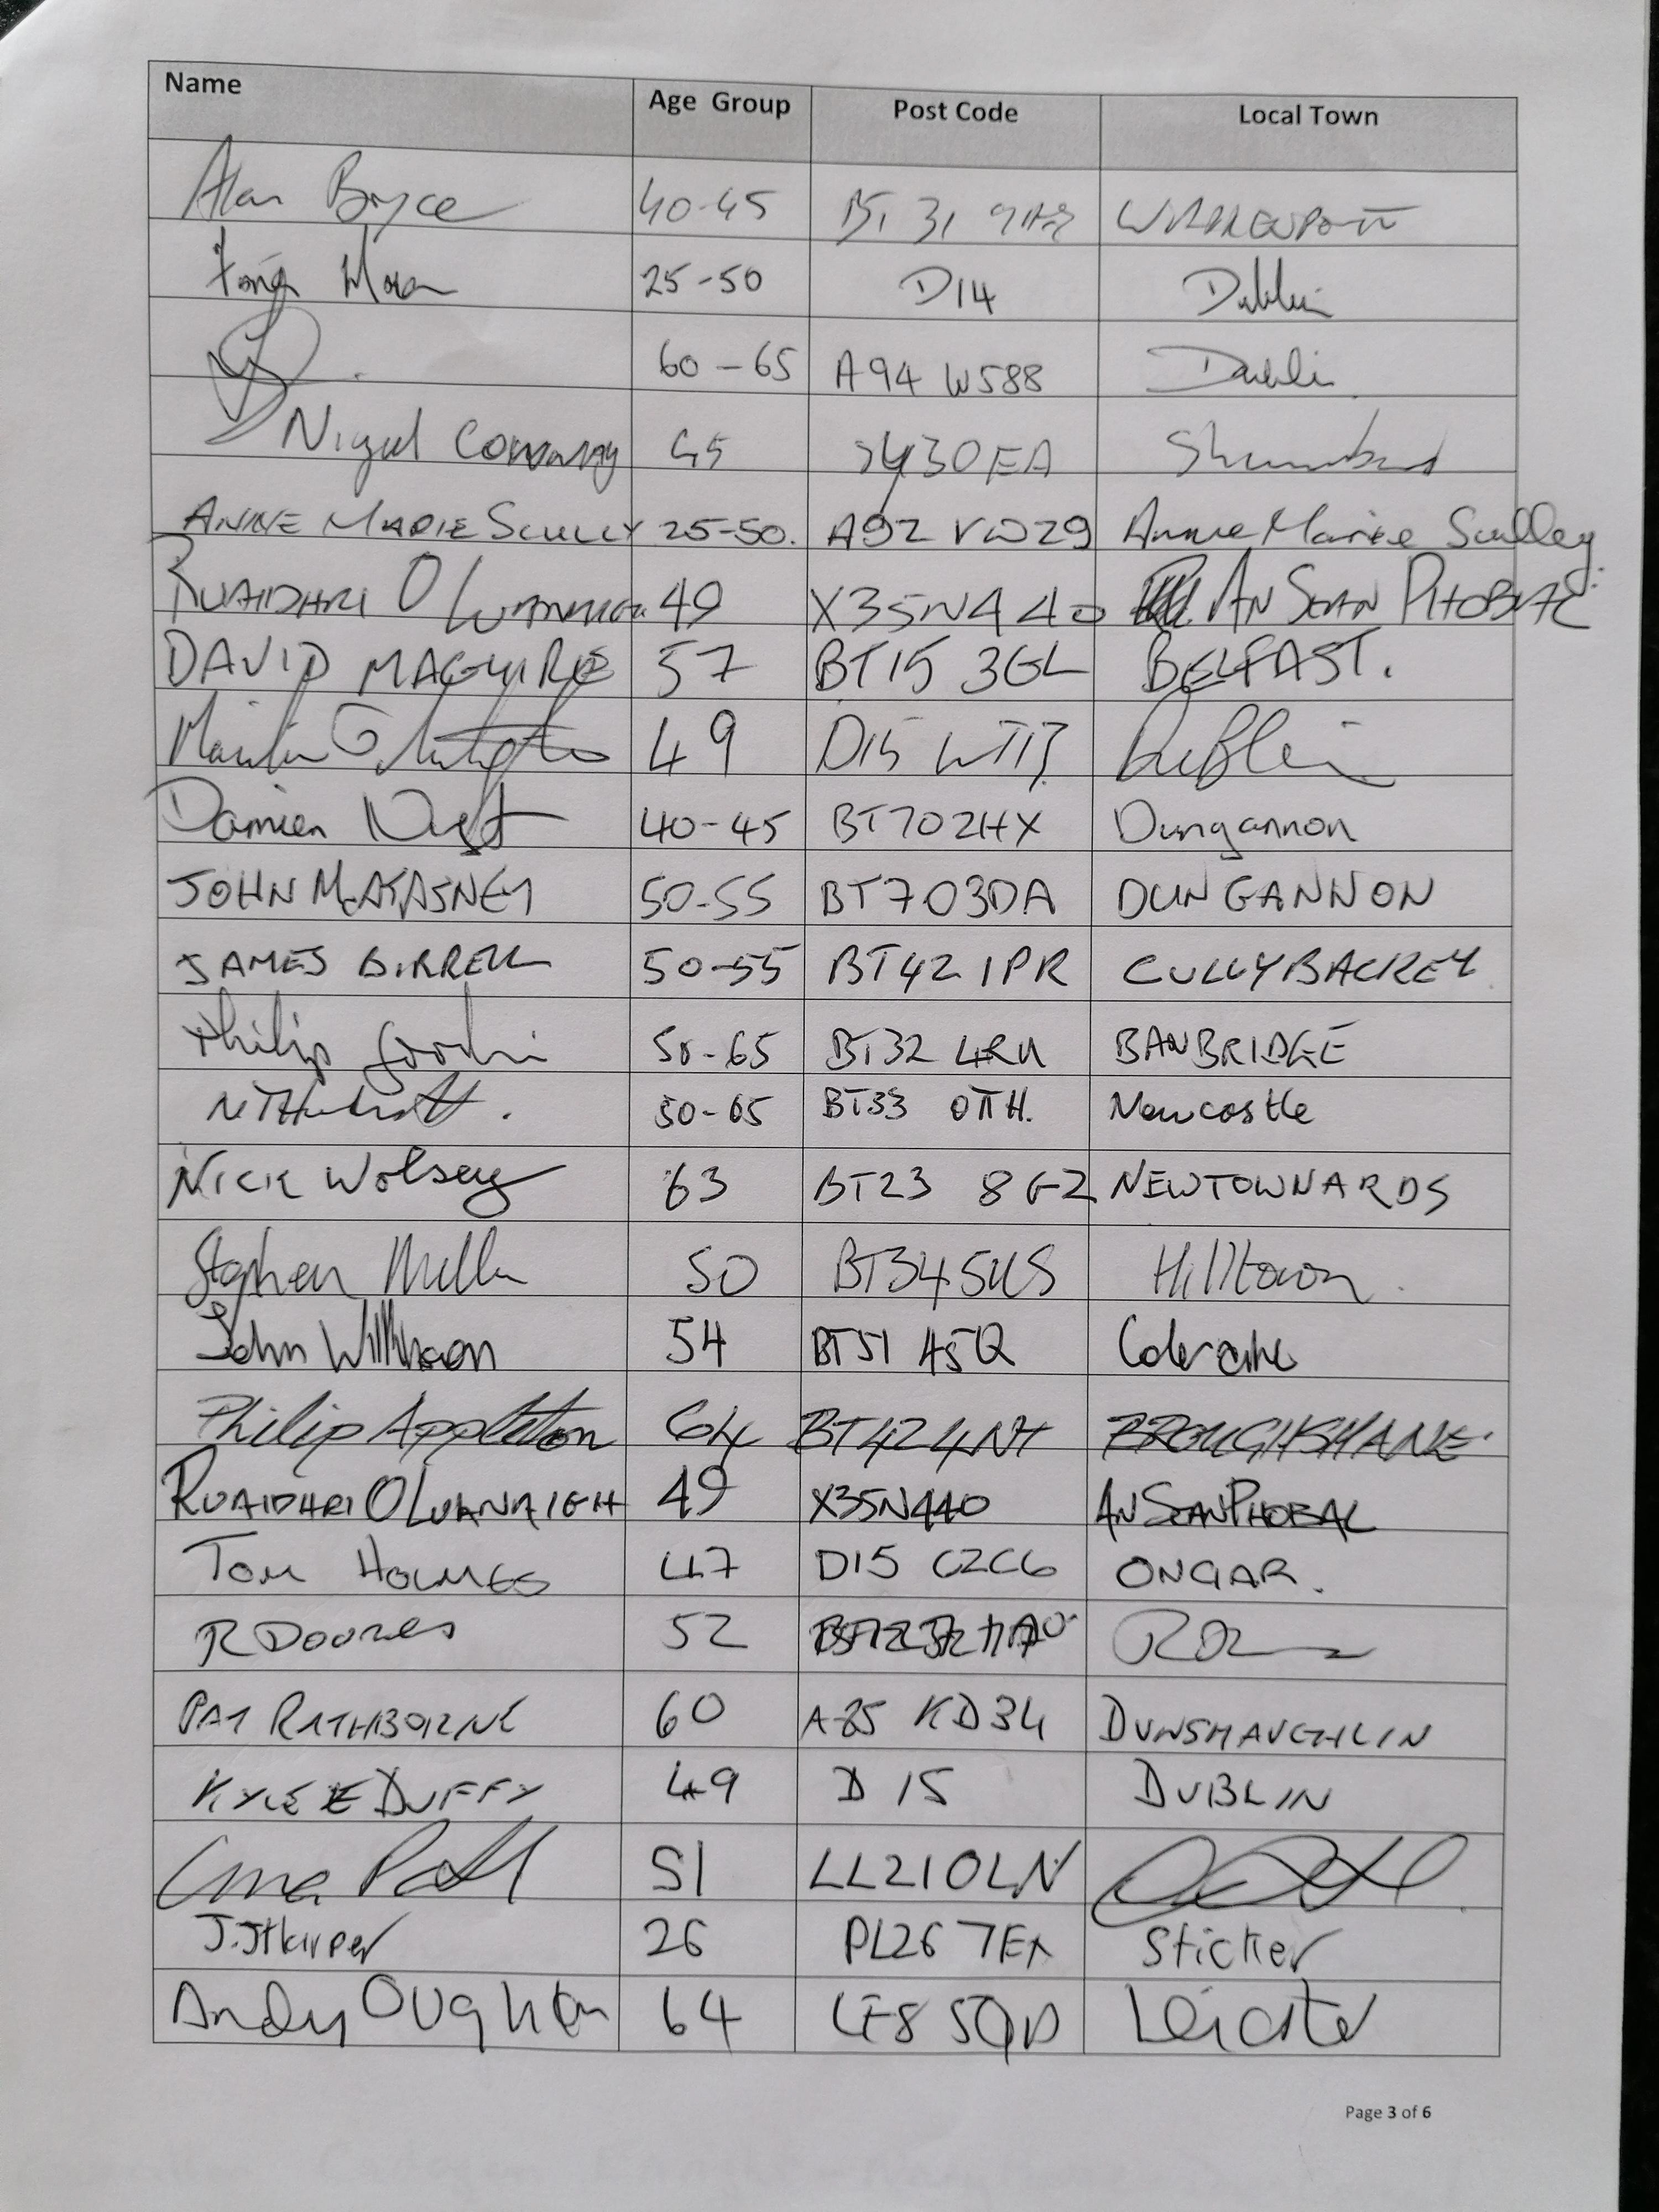 Name Age Group Post Code Local Town
Alan Bryce 40-45 BT31
25-50 D14 Dublin
60-65 A94 W588 Dublin
Nigel 45 SY30EA
ANNE MARIE SCULLY 25-50. A92 VW29 Anne Marie Sculley
RUAIDHRI O 49 X35N440 AN SEAN PHOBAL
DAVID MAGUIRE 57 BT15 3GL BELFAST.
49 D15 Dublin
Damien 40-45 BT702HX Dungannon
JOHN McATASNEY 50-55 BT703DA DUNGANNON
JAMES BIRRELL 50-55 BT42 1PR CULLYBACKEY
Philip 50-65 BT32 4RU BANBRIDGE
50-65 BT33 0TH. Newcastle
NICK Wolsey 63 BT23 8GZ NEWTOWNARDS
Stephen 50 BT345US Hilltown.
John Wilkinson 54 BT51 4SQ Coleraine
Philip Appleton 64 BT424NY BROUGHSHANE
RUAIDHRI O LUANAIGH 49 X35N440 AN SEAN PHOBAL
Tom HOLMES 47 D15 C2C6 ONGAR.
R 52
PAT RATHBORNE 60 A85 KD34 DUNSHAUGHLIN
KYLE DUFFY 49 D 15 DUBLIN
51 LL210LN
26 PL26 7EA Sticker
Andy 64 LE8 5QD Leicster
Page 3 of 6